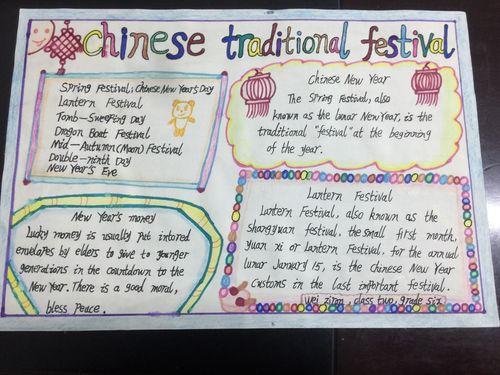 Chinese traditional festival
Spring Festival, Chinese New Year's Day
Lantern Festival
Tomb-Sweeping Day
Dragon Boat Festival
Mid-Autumn (Moon) Festival
Double-ninth Day
New Year's Eve
Chinese New Year
The Spring Festival, also
known as the lunar New Year, is the
traditional "festival" at the beginning
of the year.
New Year's money
Lucky money is usually put intored
envelopes by elders to give to younger
generations in the countdown to the
New Year. There is a good moral,
bless peace.
Lantern Festival
Lantern Festival, also known as the
shangyuan festival, the small first month,
Yuan xi or Lantern Festival, for the annual
lunar January 15, is the chinese New Year
customs in the last important festival.
wei ziran, class two, grade six